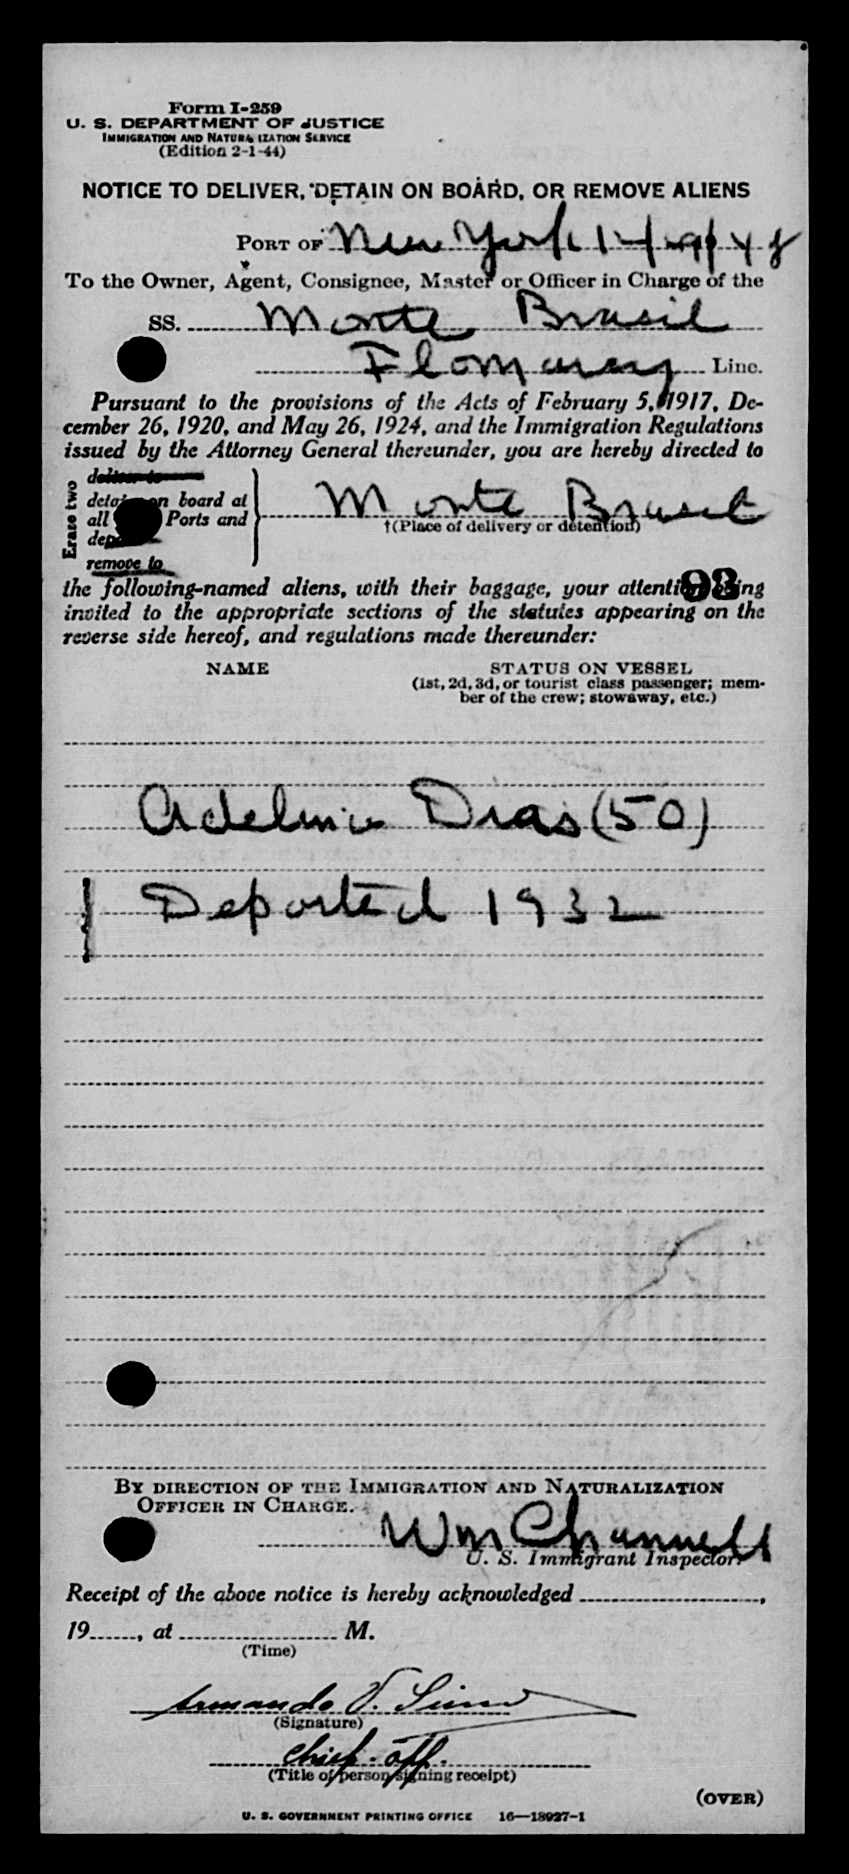 Form I-259
U. S. DEPARTMENT OF JUSTICE
IMMIGRATION AND NATURALIZATION SERVICE
(Edition 2-1-44)
NOTICE TO DELIVER, DETAIN ON BOARD, OR REMOVE ALIENS
PORT OF New York
To the Owner, Agent, Consignee, Master or Officer in Charge of the
SS. Monte Brasil
Line.
Pursuant to the provisions of the Acts of February 5, 1917, De-
cember 26, 1920, and May 26, 1924, and the Immigration Regulations
issued by the Attorney General thereunder, you are hereby directed to
Erase two
deliver to
detain on board at
all Ports and
Monte Brasil
†(Place of delivery or detention)
remove to
93
the following-named aliens, with their baggage, your attention being
invited to the appropriate sections of the statutes appearing on the
reverse side hereof, and regulations made thereunder:
NAME STATUS ON VESSEL
(1st, 2d, 3d, or tourist class passenger; mem-
ber of the crew; stowaway, etc.)
Adelino Dias (50)
Deported 1932
BY DIRECTION OF THE IMMIGRATION AND NATURALIZATION
OFFICER IN CHARGE.
Wm Channell
U. S. Immigrant Inspector.
Receipt of the above notice is hereby acknowledged ,
19 , at M.
(Time)
Armando V.
(Signature)
chief. off.
(Title of person signing receipt)
(OVER)
U. S. GOVERNMENT PRINTING OFFICE 16—18927-1